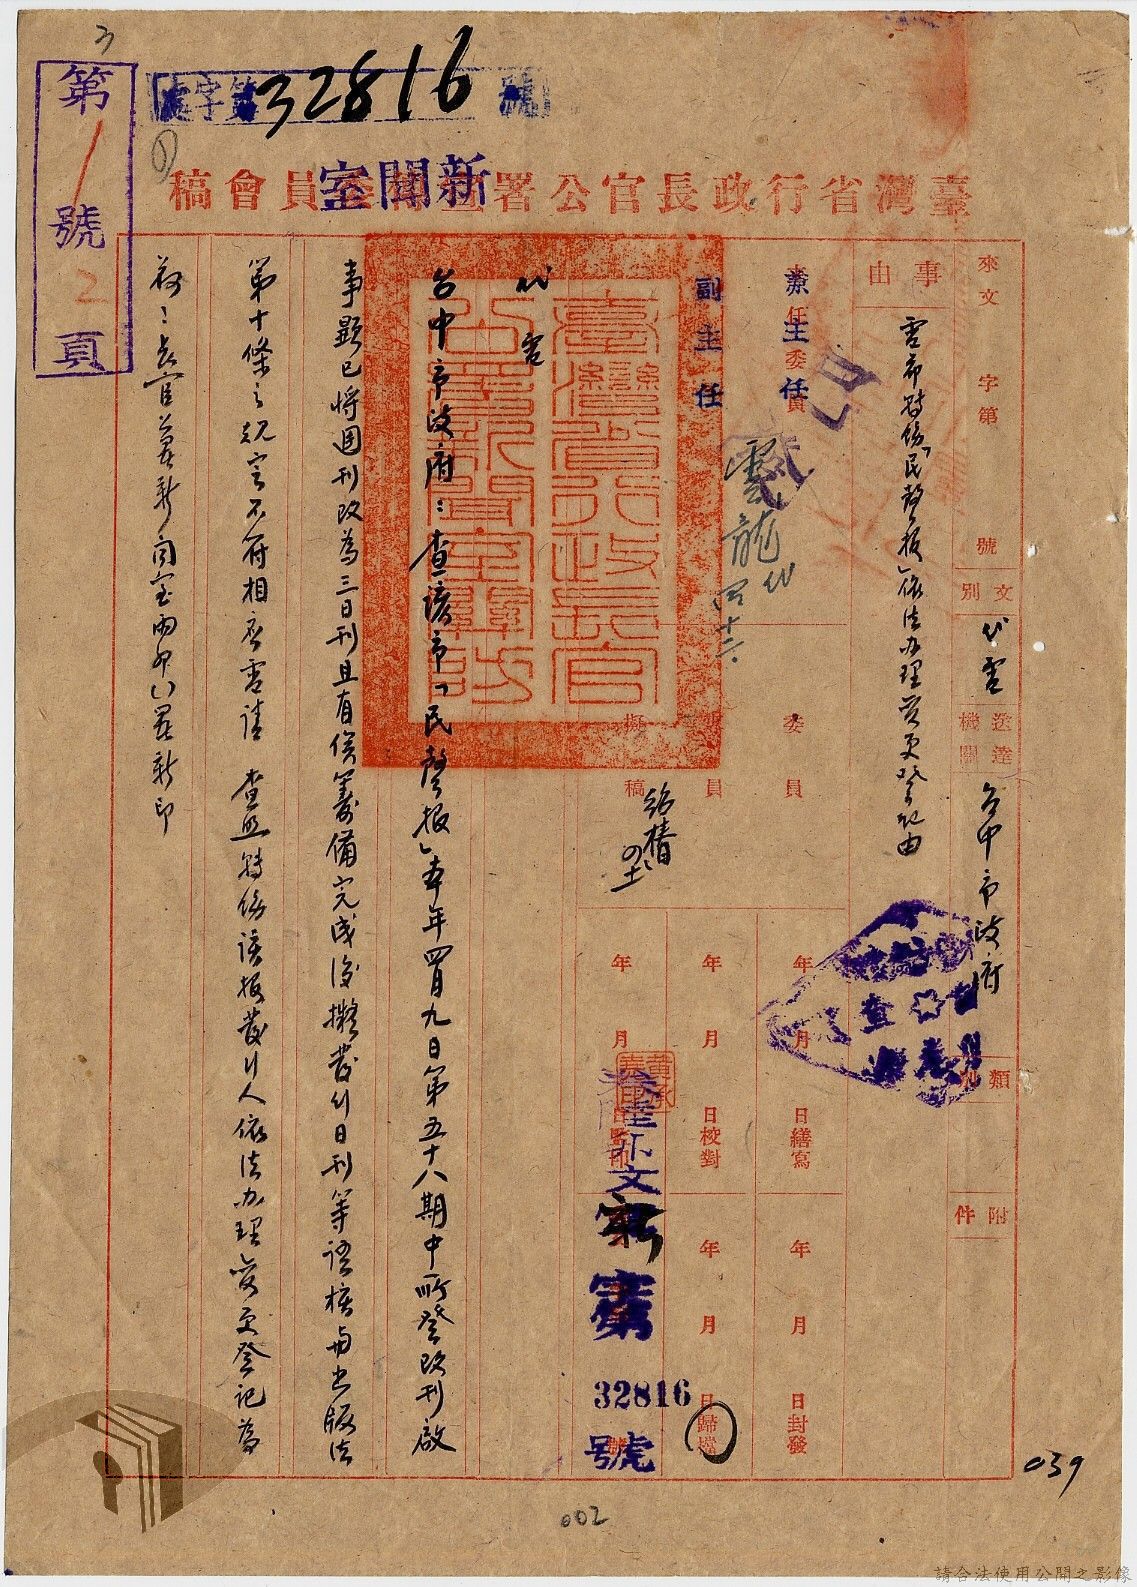 3
第1號2頁
字第32816號
臺灣省行政長官公署宣傳委員會稿
新聞室
來文 字第 號
文別 代電
送達機關 台中市政府
類別
附件
事由
電希轉飭「民聲報」依法办理變更登記由
兼主任
副主任
雲龍代
四十二
委員
擬稿
年 月 日繕寫
年 月 日校對
年 月 日封發
年 月 日歸檔
新
32816
號
代電
台中市政府：查該市「民聲報」本年四月九日第五十八期中所登改刊啟
事題已將週刊改為三日刊且有俟籌備完成後擬發刊日刊等語核與出版法
第十條之規定不符相應電請 查照轉飭該報發行人依法办理變更登記為
荷：長官公署新聞室
印
039
002
請合法使用公開之影像